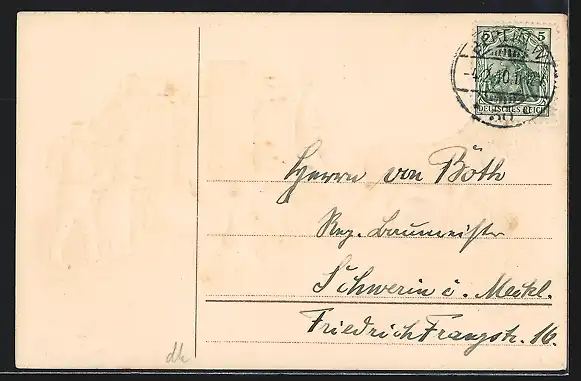 5 5
BERLIN W
DEUTSCHES REICH
Herrn von Both
Reg. Baumeister
Schwerin i. Meckl.
Friedrich Franzstr. 16.